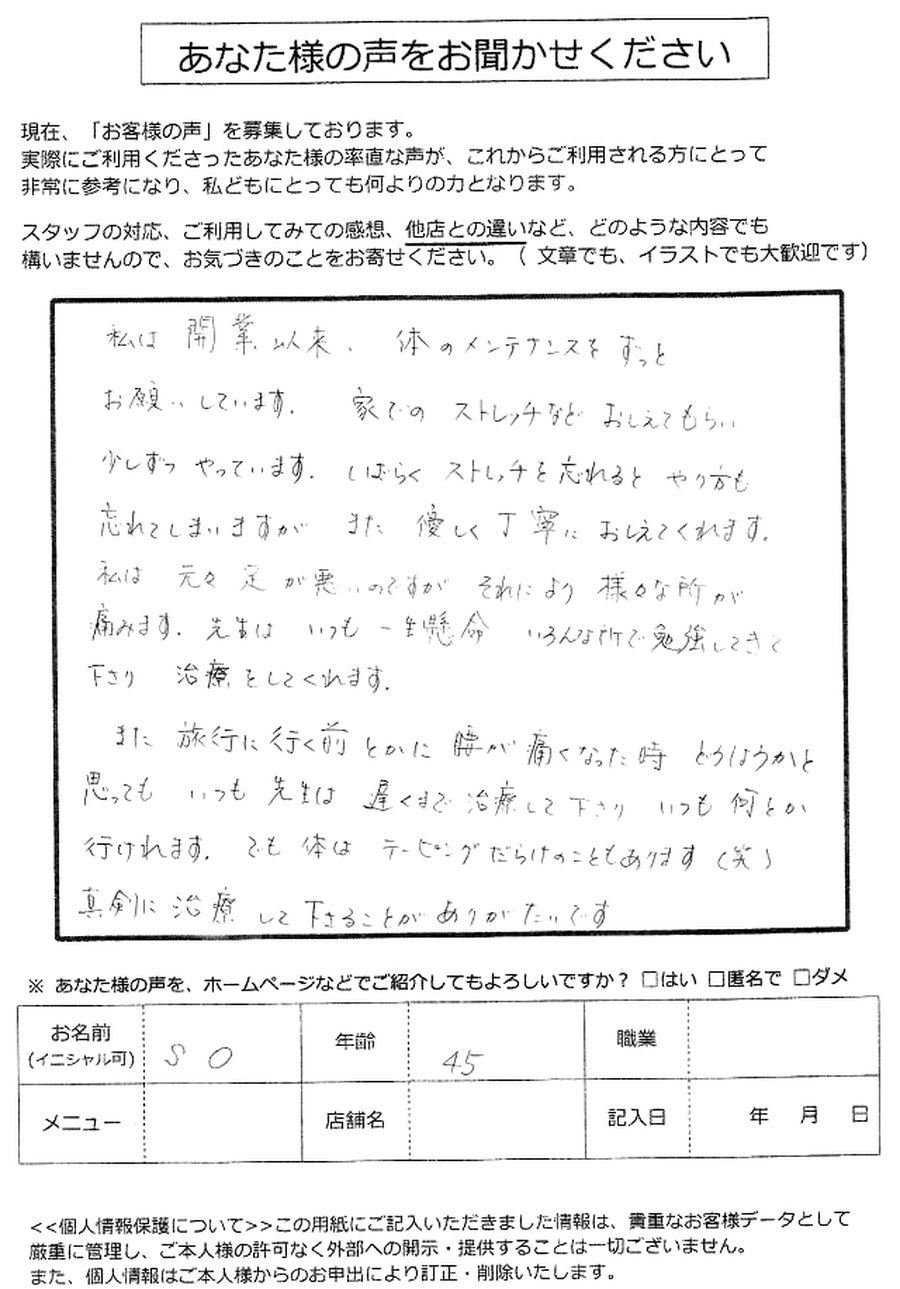 あなた様の声をお聞かせください
現在、「お客様の声」を募集しております。
実際にご利用くださったあなた様の率直な声が、これからご利用される方にとって
非常に参考になり、私どもにとっても何よりの力となります。
スタッフの対応、ご利用してみての感想、他店との違いなど、どのような内容でも
構いませんので、お気づきのことをお寄せください。（ 文章でも、イラストでも大歓迎です）
私は 開業以来、体のメンテナンスを ずっと
お願いしています。 家での ストレッチなど おしえてもらい
少しずつ やっています。しばらく ストレッチを忘れると やり方も
忘れてしまいますが また 優しく丁寧に おしえてくれます。
私は 元々 足が悪いのですが それにより 様々な所が
痛みます。先生は いつも 一生懸命 いろんな所で勉強してきて
下さり 治療をしてくれます。
また 旅行に行く前 とかに 腰が 痛くなった時 どうしようかと
思っても いつも 先生は 遅くまで 治療して下さり いつも 何とか
行けれます。でも 体は テーピングだらけのこともあります（笑）
真剣に治療 して下さることがありがたいです
※ あなた様の声を、ホームページなどでご紹介してもよろしいですか？ □はい □匿名で □ダメ
お名前 S O 年齢 45 職業
(イニシャル可)
メニュー 店舗名 記入日 年 月 日
<<個人情報保護について>>この用紙にご記入いただきました情報は、貴重なお客様データとして
厳重に管理し、ご本人様の許可なく外部への開示・提供することは一切ございません。
また、個人情報はご本人様からのお申出により訂正・削除いたします。